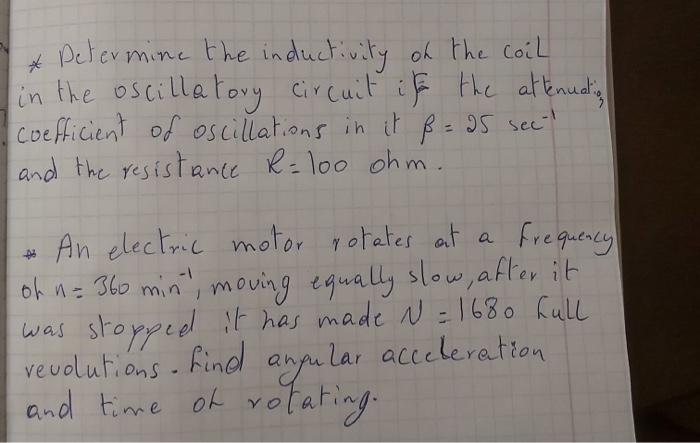 * Determine the inductivity of the coil
in the oscillatory circuit if the attenuating
coefficient of oscillations in it β = 25 sec⁻¹
and the resistance R = 100 ohm.
* An electric motor rotates at a frequency
of n = 360 min⁻¹, moving equally slow, after it
was stopped it has made N = 1680 full
revolutions. find angular acceleration
and time of rotating.